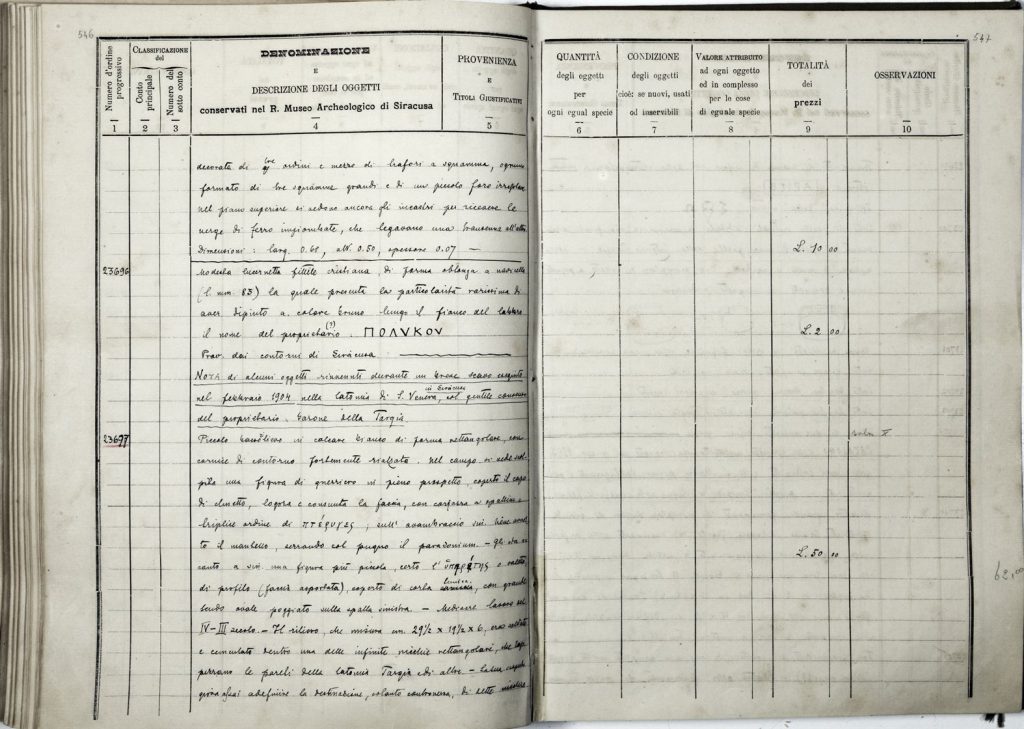 546
547
Numero d'ordine progressivo
CLASSIFICAZIONE del
Conto principale
Numero del sotto conto
DENOMINAZIONE
E
DESCRIZIONE DEGLI OGGETTI
conservati nel R. Museo Archeologico di Siracusa
PROVENIENZA
E
TITOLI GIUSTIFICATIVI
QUANTITÀ
degli oggetti
per
ogni egual specie
CONDIZIONE
degli oggetti
cioè: se nuovi, usati
od inservibili
VALORE ATTRIBUITO
ad ogni oggetto
ed in complesso
per le cose
di eguale specie
TOTALITÀ
dei
prezzi
OSSERVAZIONI
1 2 3 4 5 6 7 8 9 10
decorata di tre ordini e mezzo di trafori a squamma, ognuno
formato di tre squamme grandi e di un piccolo foro irregolare
nel piano superiore si vedono ancora gli incastri per ricevere le
verghe di ferro impiombate, che legavano una transenna all'altra
Dimensioni: larg. 0.68, alt. 0.50, spessore 0.07 —
L. 10 00
23696
Modesta lucernetta fittile cristiana, di forma oblonga a navicella
(l. mm. 83) la quale presenta la particolarità rarissima di
aver dipinto a colore bruno lungo il fianco del
il nome del proprietario (?) ΠΟΛΥΚΟΥ
L. 2 00
Prov. dai contorni di Siracusa
Nota di alcuni oggetti rinvenuti durante un breve scavo eseguito
nel febbraio 1904 nella latomia di S. Venera, in Siracusa col gentile consenso
del proprietario Barone della Targia
23697
Piccolo in calcare bianco di forma rettangolare, con
cornice di contorno fortemente rialzata. Nel campo si vede scol-
pita una figura di guerriero in pieno prospetto, coperto il capo
di elmetto, logora e consunta la faccia, con corazza a spalline e
triplice ordine di πτέρυγες; sull'avambraccio sin. tiene avvol-
to il mantello, serrando col pugno il parazonium. — Gli sta ac-
canto a sin. una figura più piccola, certo l'ὑπηρέτης o valetto,
L. 50 00
di profilo (faccia asportata), coperto di corta tunica, con grande
scudo ovale poggiato sulla spalla sinistra. — Mediocre lavoro del
IV-III secolo. — Il rilievo, che misura cm. 29½ x 19½ x 6, era saldato
e cementato dentro una delle infinite nicchie rettangolari, che
le pareti della latomia Targia e di altre —
giova assai a definire la destinazione, cotanto controversa, di dette nicchie
62,00